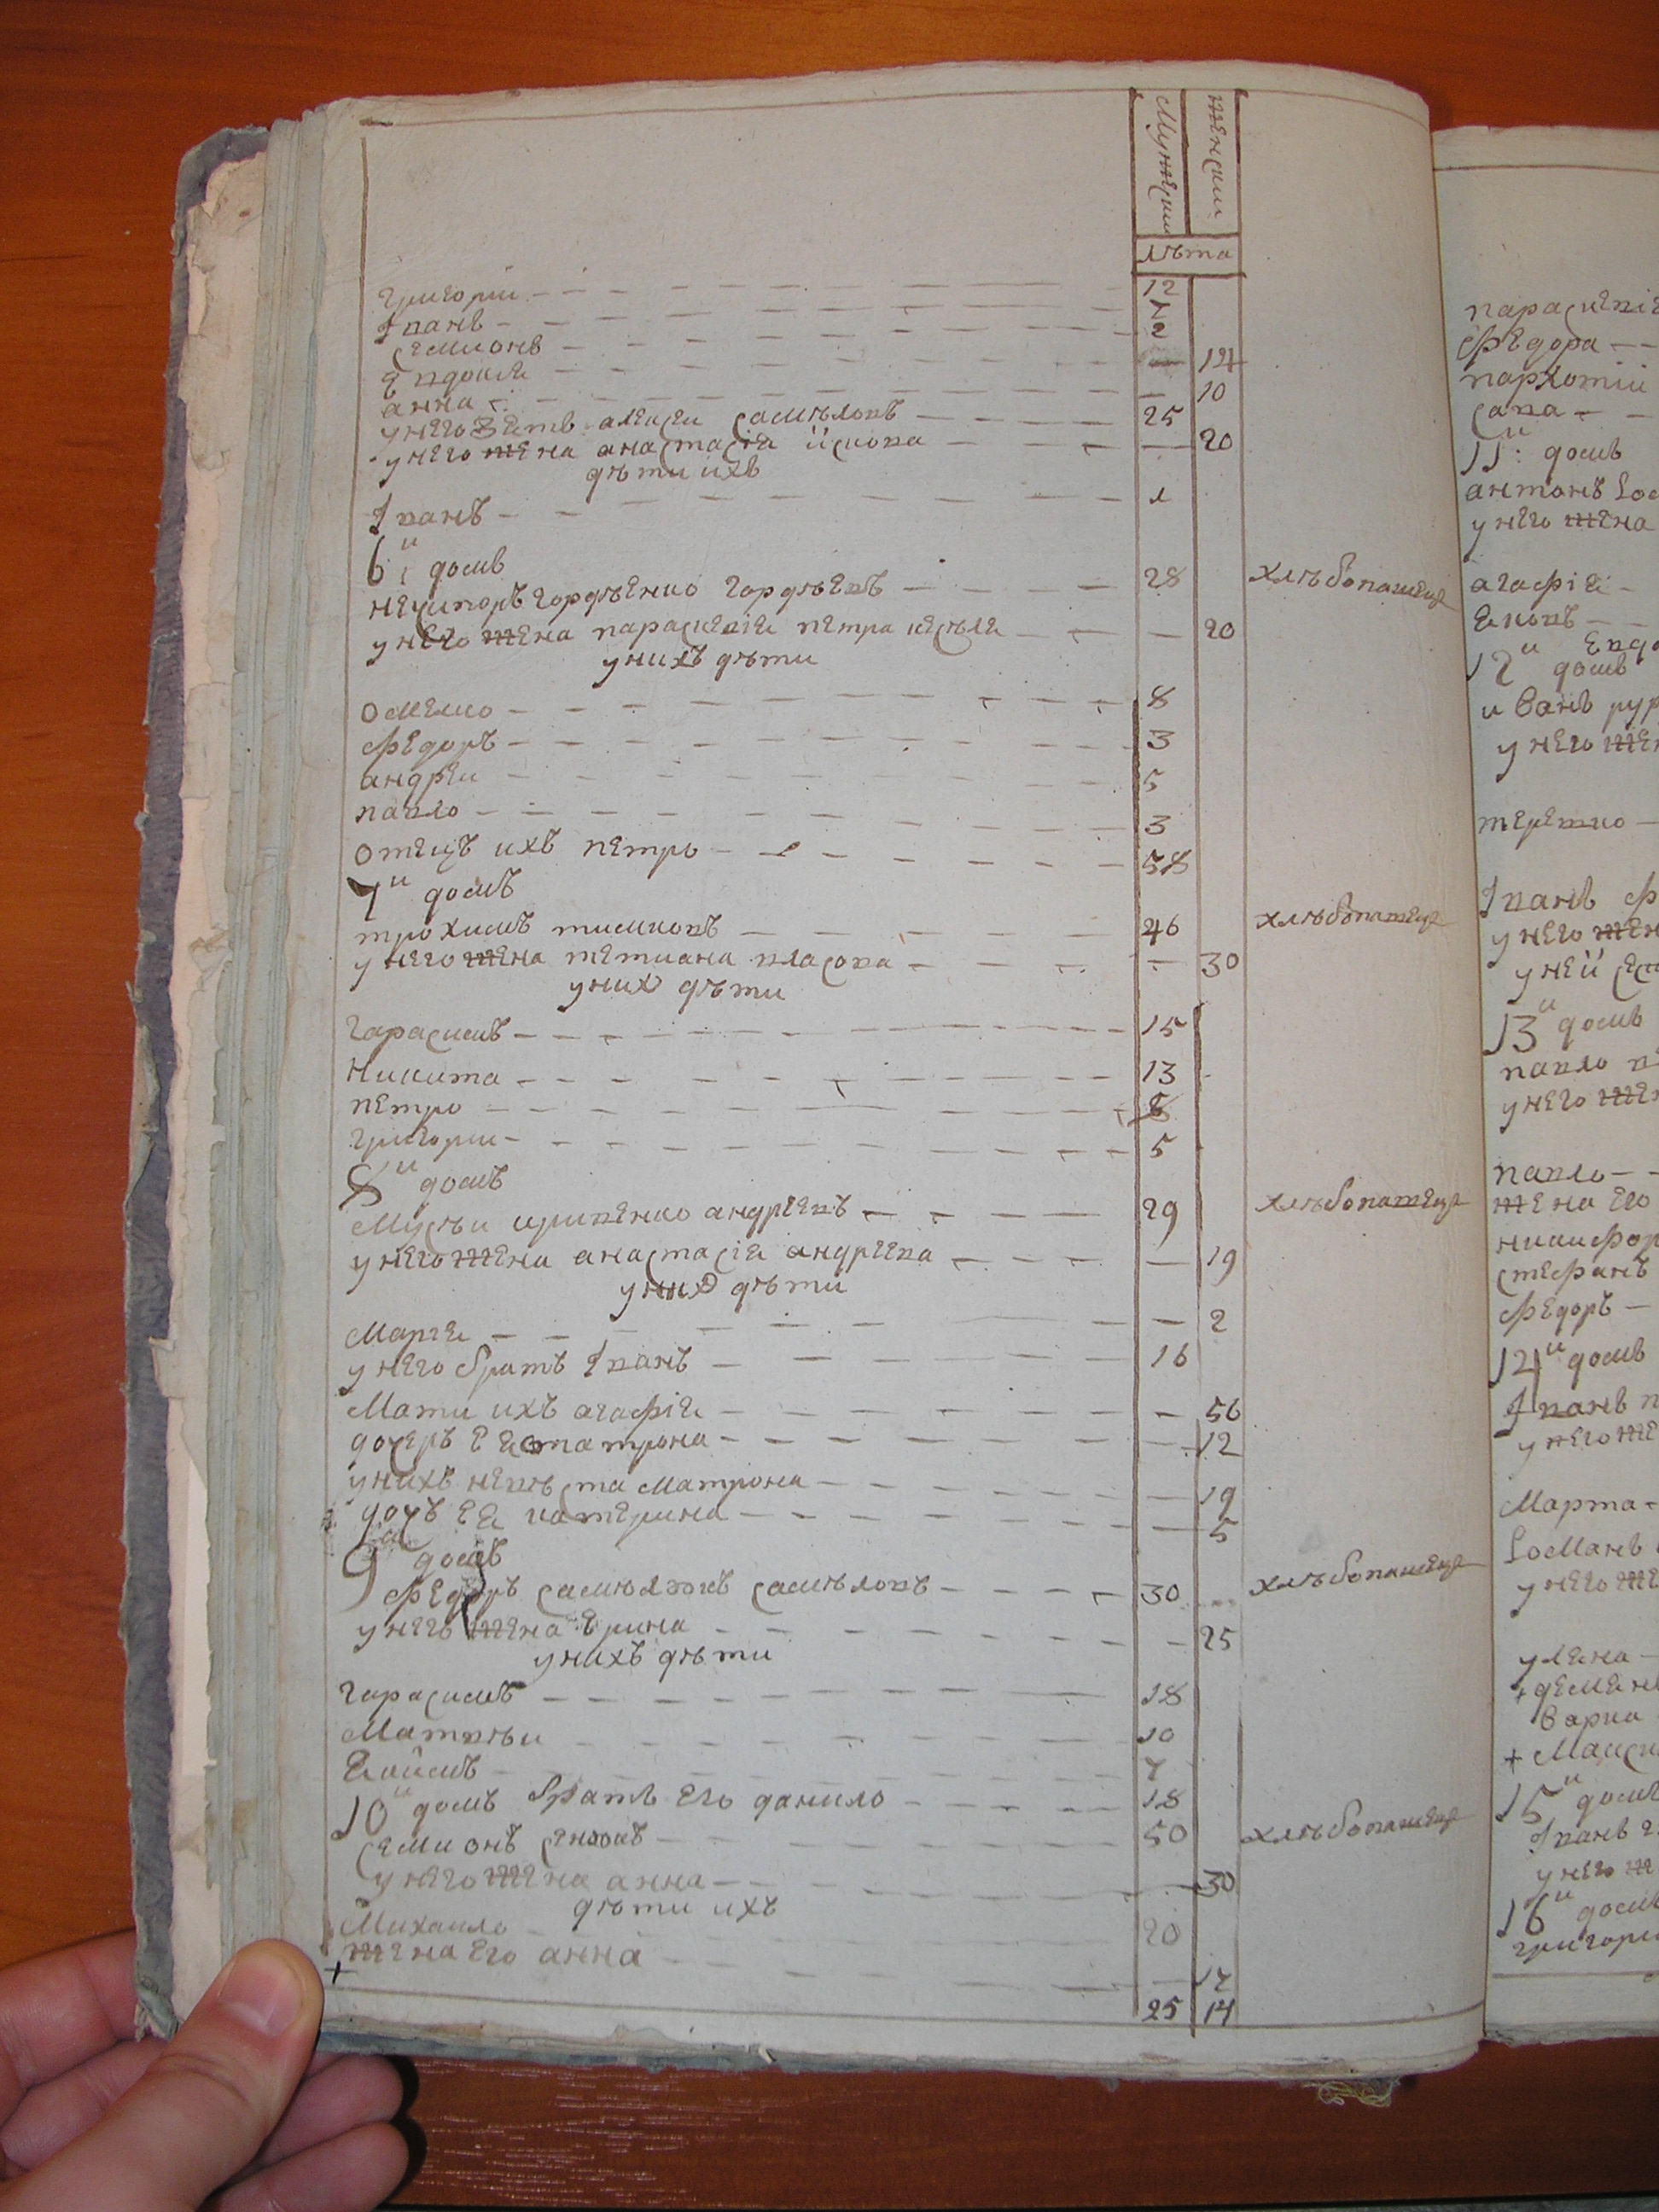 Мужески
женски
лѣта
григории 12
Іванъ 7
семионъ 2
Евдокия 14
анна 10
у него зять алексеи самѣловъ 25
у него жена анастасія 20
дѣти ихъ
Іванъ 1
6и домъ
нечипоръ гордѣенко гордѣевъ 28 хлѣбопашецъ
у него жена параскевія петра 20
у нихъ дѣти
омелко 8
федоръ 3
андреи 5
павло 3
отецъ ихъ петро 58
7и домъ
трохимъ тимковъ 46 хлѣбопашецъ
у него жена тетиана власова 30
у них дѣти
гарасимъ 15
никита 13
петро 8
григории 5
8и домъ
Мусѣи кривенко андреевъ 29 хлѣбопашецъ
у него жена анастасія андреева 19
у них дѣти
Марія 2
у него братъ Іванъ 16
Мати ихъ агафія 56
дочеръ ея матрона 12
у нихъ невѣста матрона 19
дочъ ея катерина 5
9и домъ
федоръ самѣловъ 30 хлѣбопашецъ
у него жена Ерина 25
у нихъ дѣти
гарасимъ 18
Матвѣи 10
Екимъ 7
10и домъ братъ его данило 18
семионъ 50 хлѣбопашецъ
у него жена анна 30
дѣти ихъ
Михаило 20
жена его анна 17
+
25 14
параскевія
федора
пархомій
сава
11и домъ
антонъ
у него жена
агафія
яковъ
12и домъ
иванъ
у него
терешко
Іванъ
у него
у ней
13и домъ
павло
у него
павло
жена его
никифор
стефанъ
федоръ
14и домъ
Іванъ
у него
Марта
романъ
у него
уляна
+
варка
+
15и домъ
Іванъ
у него
16и домъ
григори